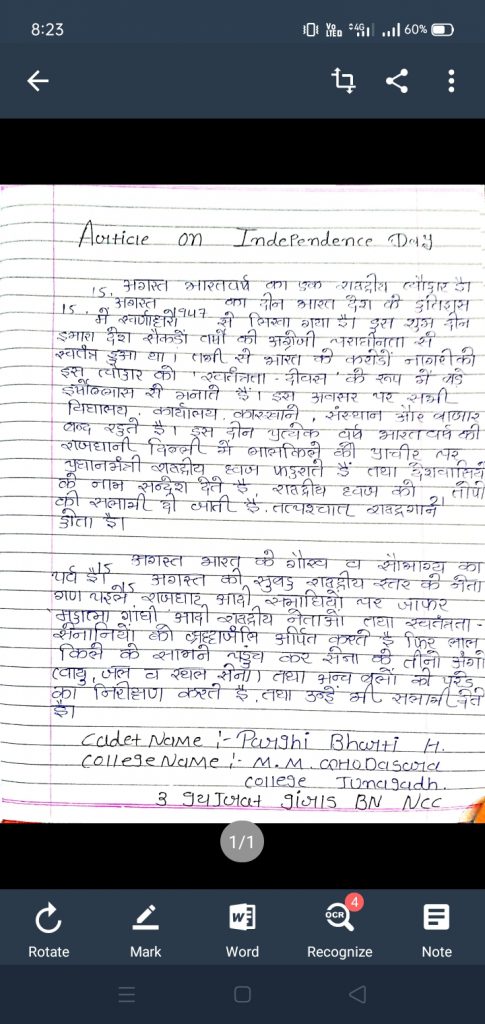 8:23
Vo LTED
4G
60%
Aurticle on Independence Day
15 अगस्त भारतवर्ष का एक राष्ट्रीय त्यौहार है।
15 अगस्त 1947 का दीन भारत देश के इतिहास
में स्वर्णाक्षरो से लिखा गया है। इस शुभ दीन
हमारा देश सैकडों वर्षो की अंग्रेजी पराधीनता से
स्वतंत्र हुआ था। तभी से भारत के करोडों नागरीकों
इस त्यौहार को 'स्वतंत्रता-दीवस' के रूप में बडे
हर्षोल्लास से मनाते है। इस अवसर पर सभी
विद्यालय, कार्यालय, कारखाने, संस्थान और बाजार
बन्द रहते है। इस दीन प्रत्येक वर्ष भारतवर्ष की
राजधानी दिल्ली में लालकिले की प्राचीर पर
प्रधानमंत्री राष्ट्रीय ध्वज फहराते हैं तथा देशवासियों
के नाम सन्देश देते है. राष्ट्रीय ध्वज को 21 तोपो
की सलामी दी जाती है. तत्पश्चात राष्ट्रगान
होता है।
15 अगस्त भारत के गौरव व सौभाग्य का
पर्व है। 15 अगस्त की सुबह राष्ट्रीय स्तर के नेता
गण पहले राजघाट आदी समाधियों पर जाकर
महात्मा गांधी आदी राष्ट्रीय नेताओं तथा स्वतंत्रता-
सेनानियों को श्रद्धांजलि अर्पित करते है फिर लाल
किले के सामने पहुंच कर सेना के तीनो अंगो
(वायु, जल व स्थल सेना) तथा अन्य बलों की परेड
का निरीक्षण करते है, तथा उन्हें भी सलामी देते
है।
Cadet Name :- Parghi Bharti H.
College Name :- M.M. GHODasara
College Junagadh.
3 Gujarat girls BN NCC
1/1
4
OCR
Rotate Mark Word Recognize Note